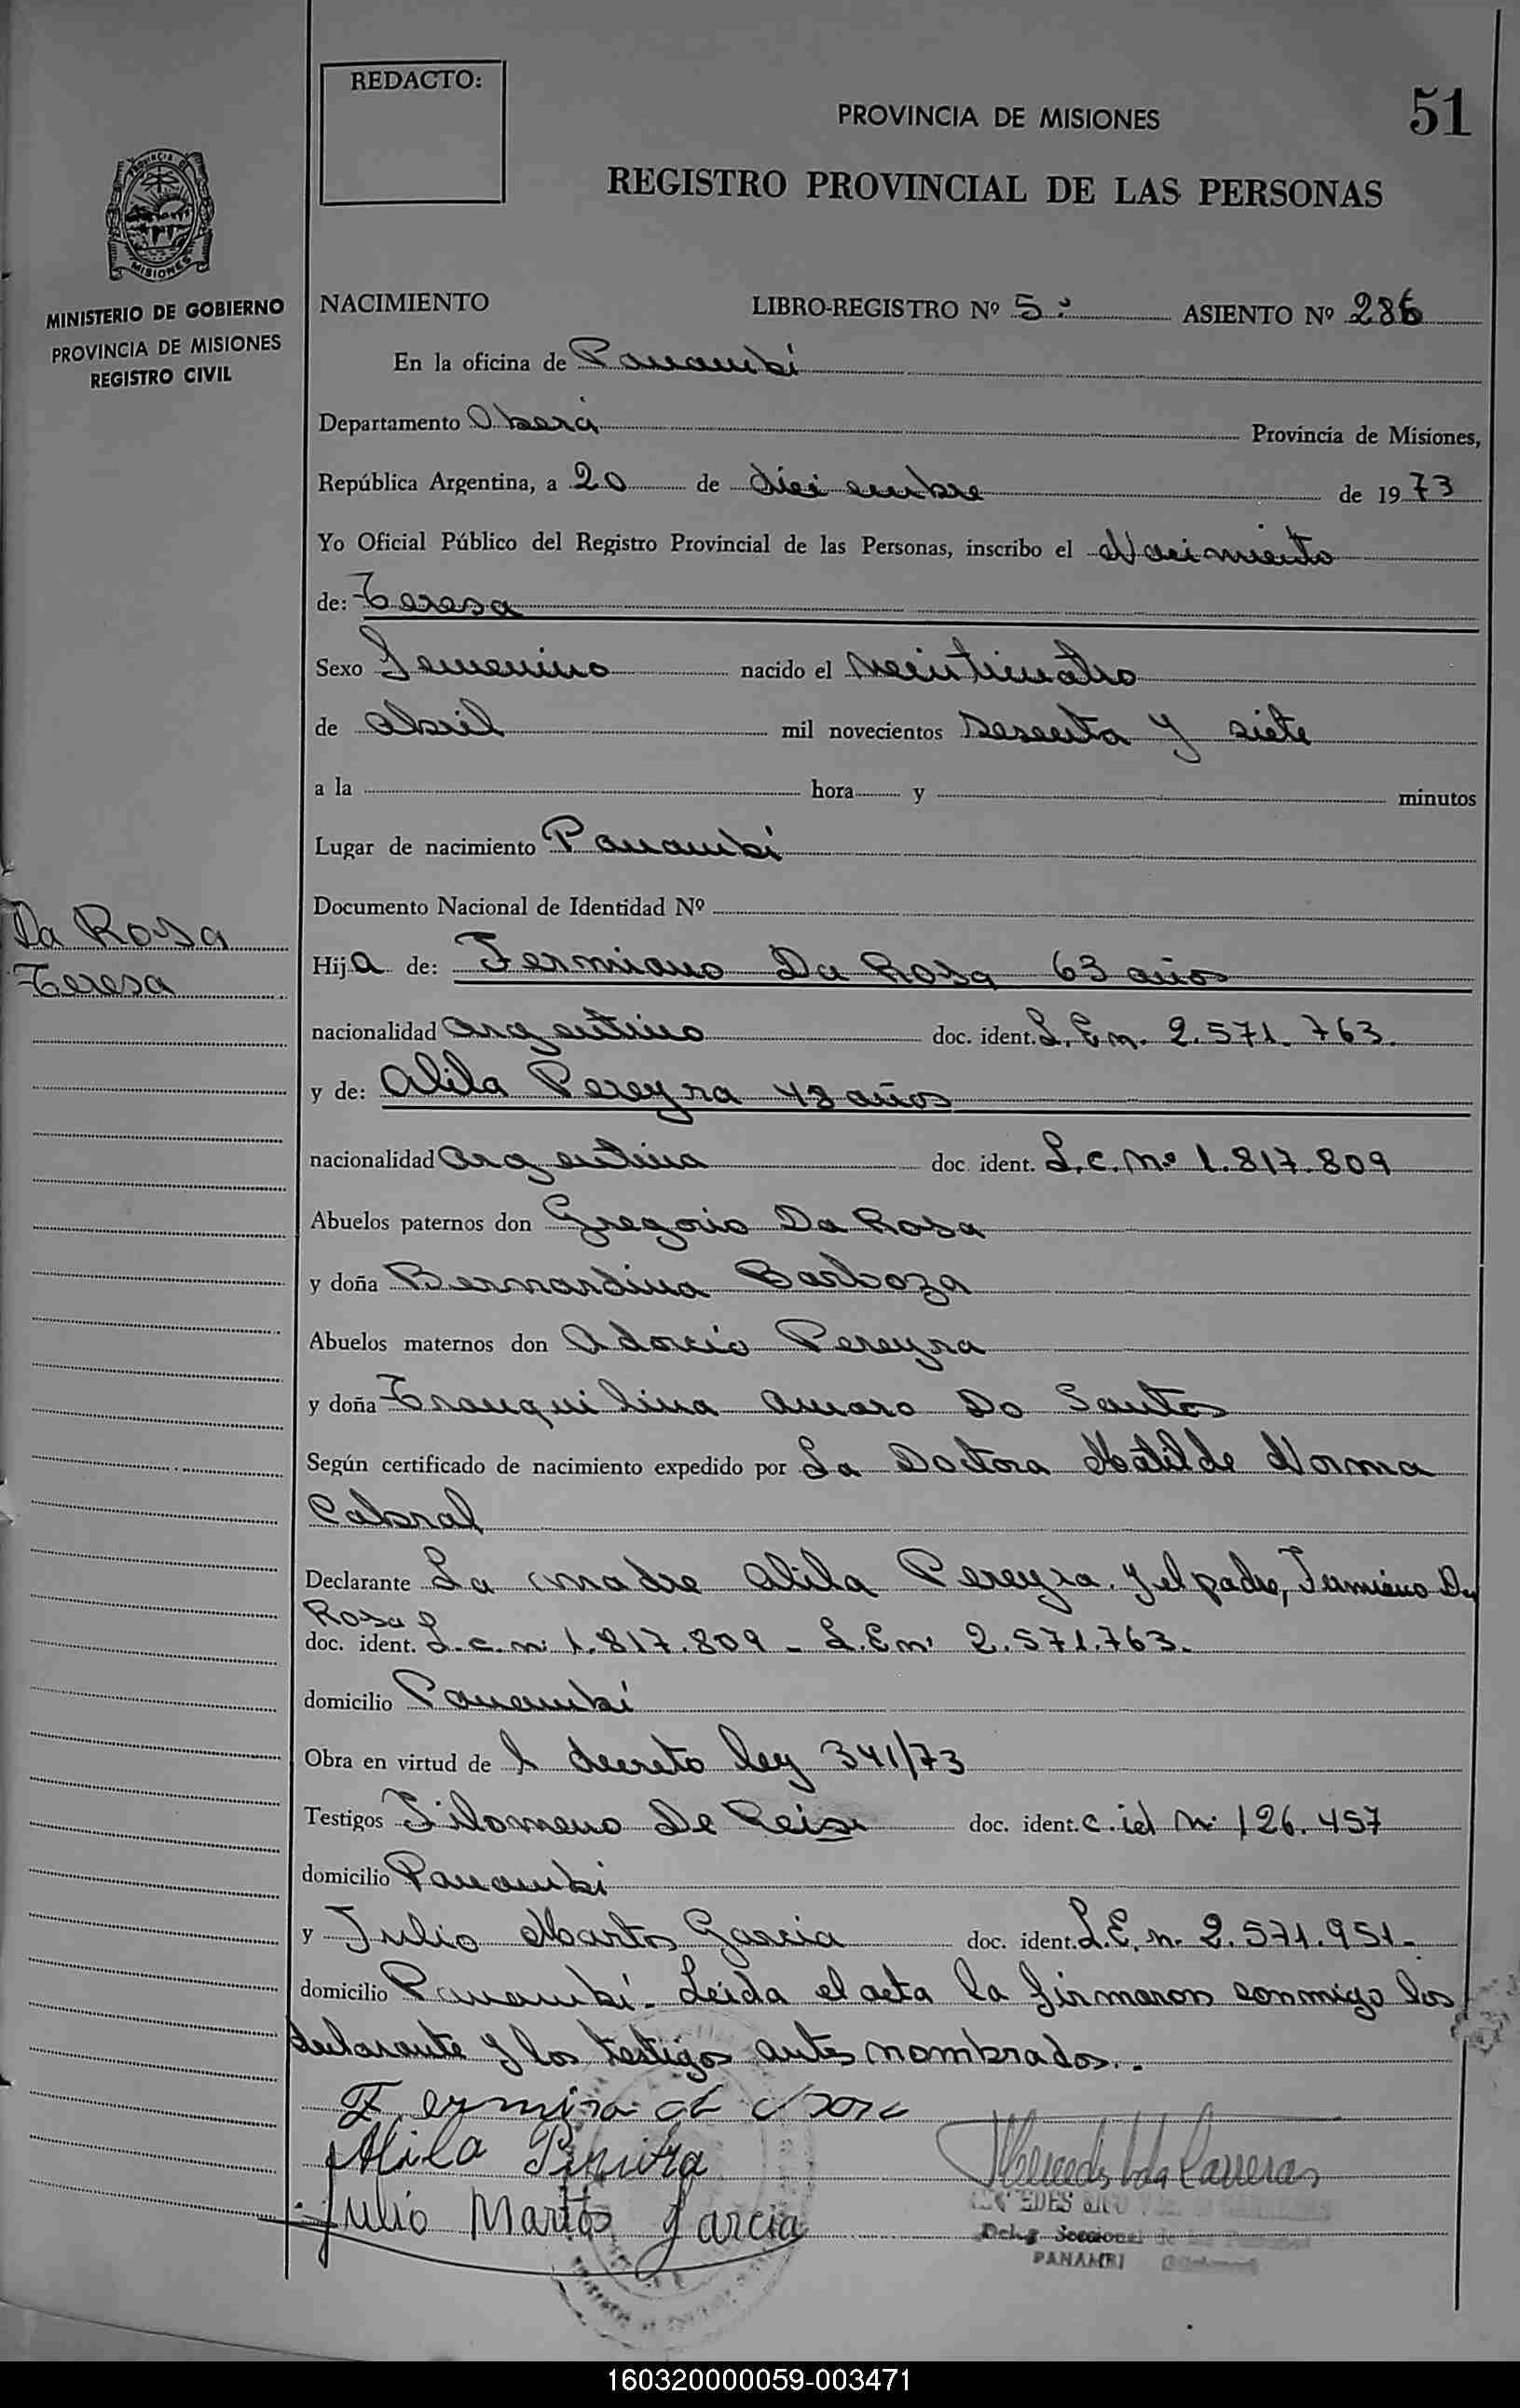 REDACTO:
PROVINCIA DE MISIONES
51
REGISTRO PROVINCIAL DE LAS PERSONAS
PROVINCIA DE
MISIONES
MINISTERIO DE GOBIERNO
PROVINCIA DE MISIONES
REGISTRO CIVIL
NACIMIENTO LIBRO-REGISTRO Nº 5: ASIENTO Nº 286
En la oficina de Panambí
Departamento Oberá Provincia de Misiones,
República Argentina, a 20 de diciembre de 1973
Yo Oficial Público del Registro Provincial de las Personas, inscribo el Nacimiento
de: Teresa
Sexo Femenino nacido el Veinticuatro
de Abril mil novecientos Sesenta y siete
a la hora y minutos
Lugar de nacimiento Panambí
Documento Nacional de Identidad Nº
Da Rosa
Teresa
Hija de: Fermiano Da Rosa 63 años
nacionalidad Argentino doc. ident. L. E n. 2.571.763.
y de: Alila Pereyra 48 años
nacionalidad Argentina doc ident. L.C. nº 1.817.809
Abuelos paternos don Gregorio Da Rosa
y doña Bernardina Barboza
Abuelos maternos don Adorcio Pereyra
y doña Tranquilina Amaro Do Santos
Según certificado de nacimiento expedido por La Doctora Matilde Norma
Cabral
Declarante La madre Alila Pereyra. y el padre, Fermiano Da
Rosa
doc. ident. L.c.n: 1.817.809 - L.E n: 2.571.763.
domicilio Panambí
Obra en virtud de l decreto ley 341/73
Testigos Filomeno De doc. ident. c. id n: 126.457
domicilio Panambi
y Julio Martos Garcia doc. ident. L.E. n. 2.571.951.
domicilio Panambí. Leída el acta la firmaron conmigo los
declarante y los testigos antes nombrados..
Alila
Julio Martos Garcia
PANAMBI
160320000059-003471